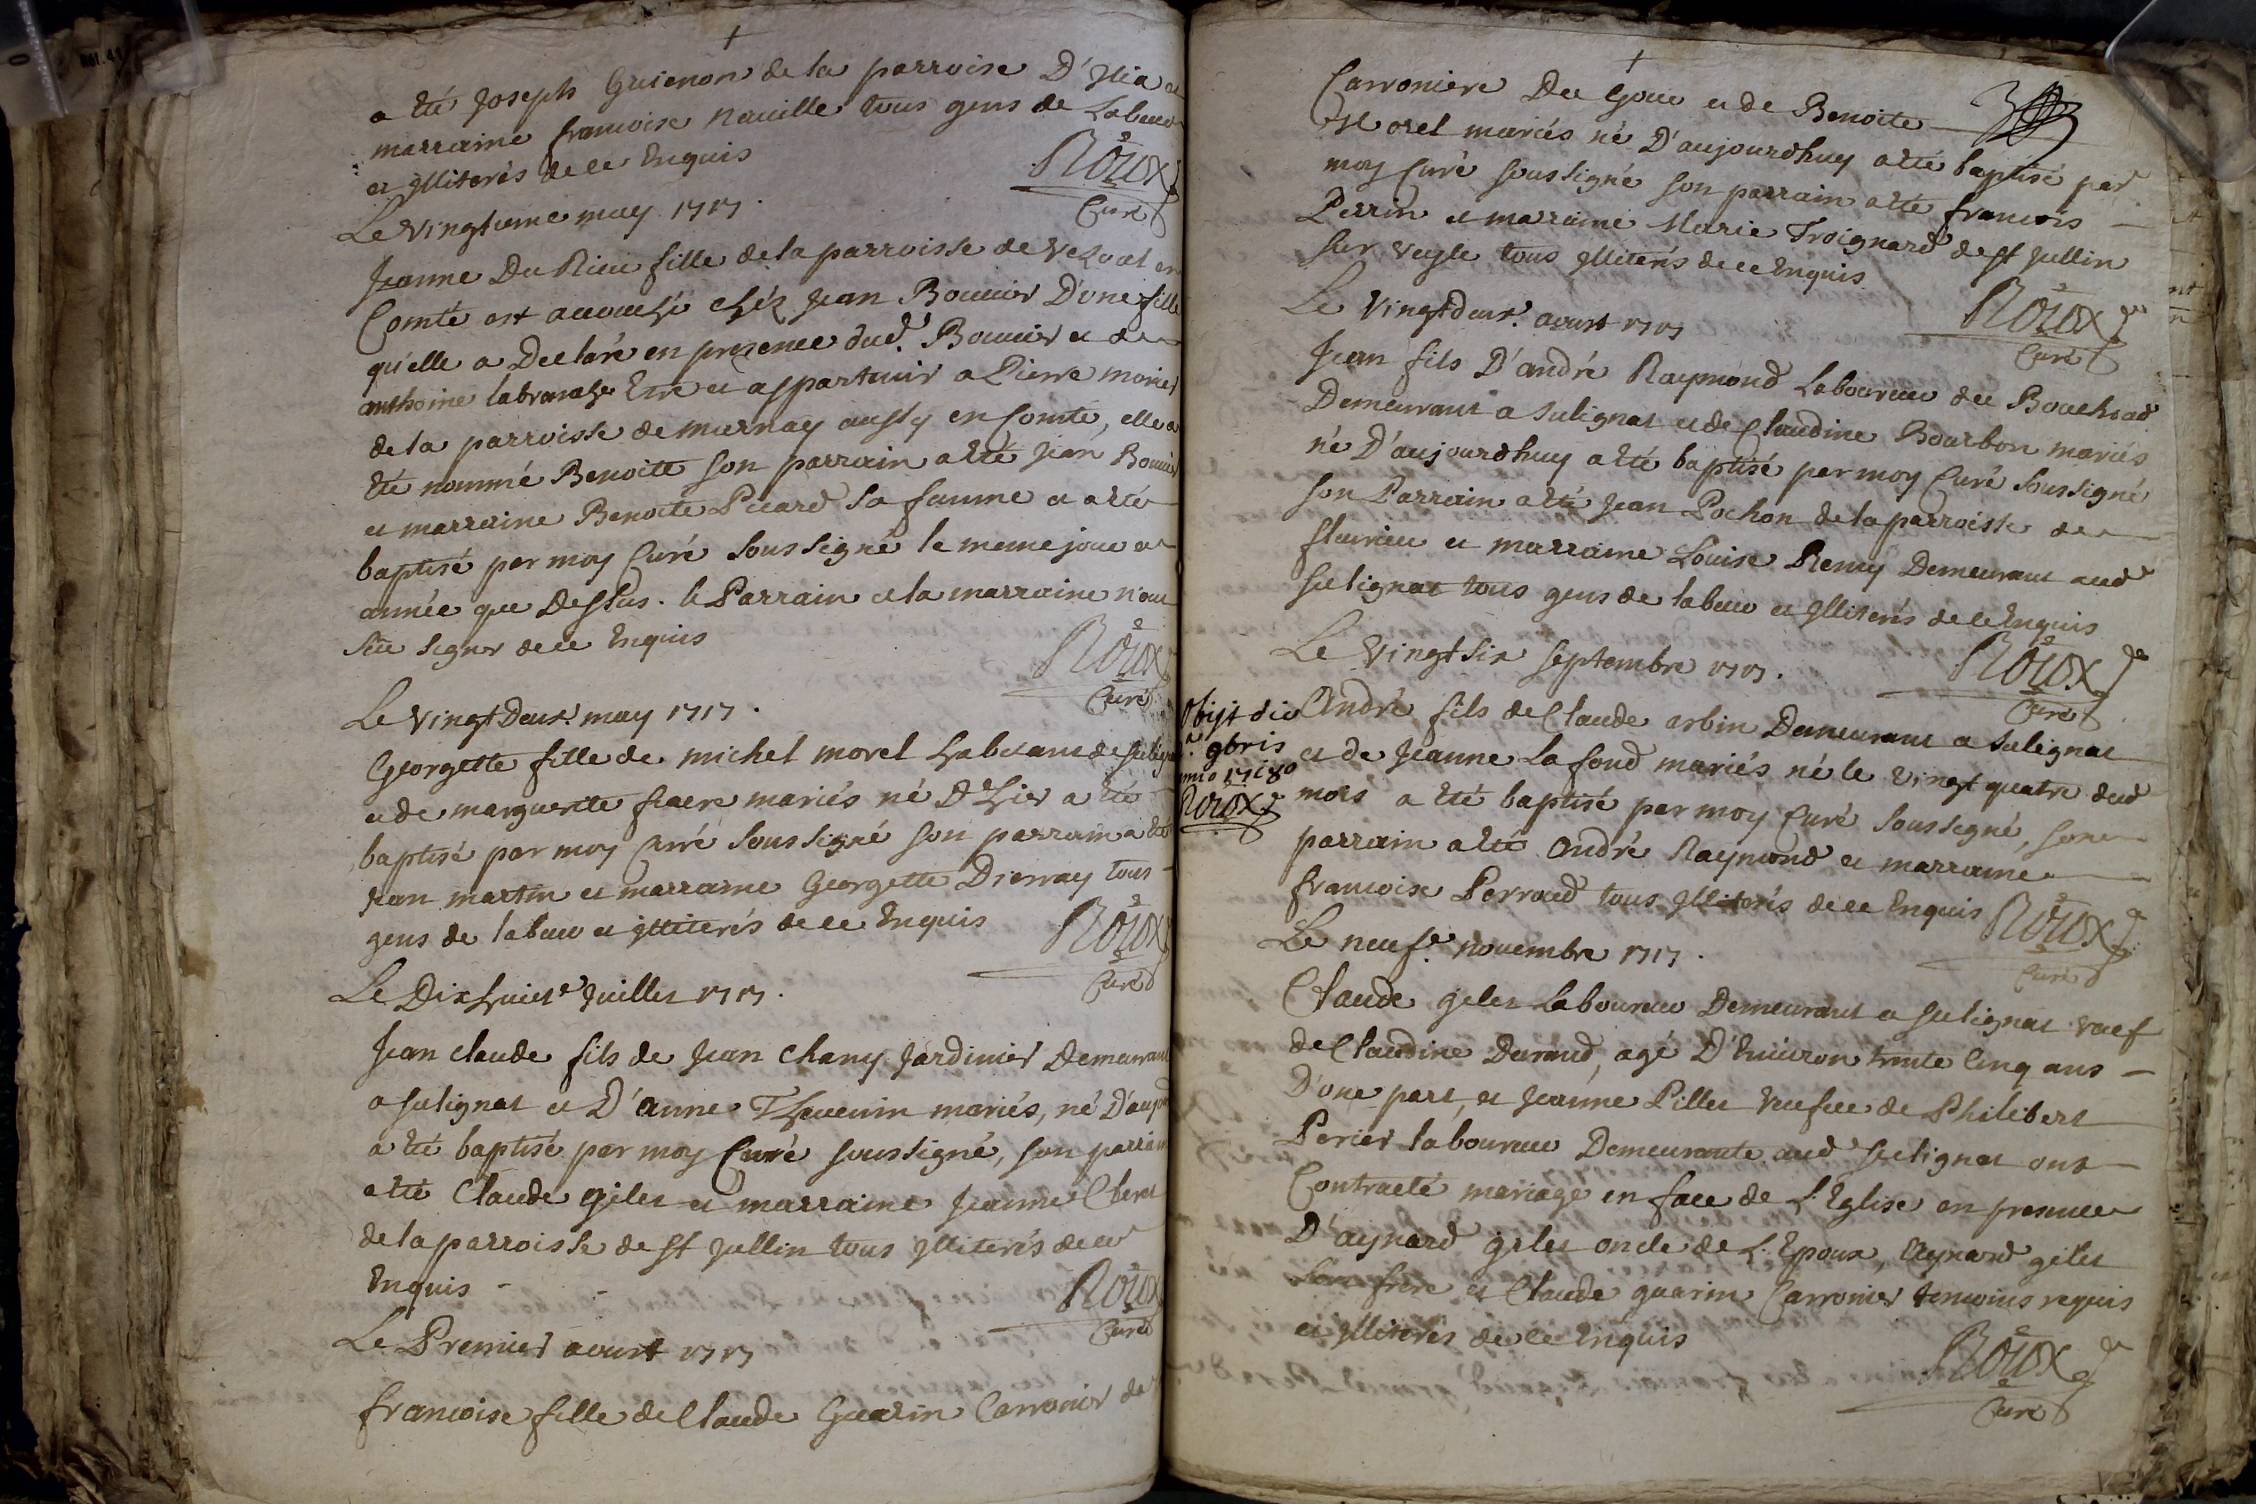 a été Joseph Guienon de la parroise D'Illia et
marraine francoise nauille tous gens de Labeur
et jlliterés de ce Enquis
Roux
Curé
Le Vingtieme may 1717.
Jeanne Du Rieu fille de la parroisse de en
Comté est accouché chéz Jean Bouuier D'une fille
qu'elle a Declaré en presence dud. Bouuier et de
anthoine labranche Etre et appartenir a Pierre monier
de la parroisse de marnay aussy en Comté, elle a
été nommé Benoitte son parrain a été Jean Bouuier
et marraine Benoite Picard sa famme et a été
baptisé par moy Curé sous signé le meme jour et
année que Dessus. le Parrain et la marraine n'ont
sçu signer de ce Enquis
Roux
Curé
Le vingt Deux. may 1717.
Georgette fille de michel morel habitant de suligna
et de marguerite fiaere mariés né D'hier a été
baptisé par moy Curé sous signé son parrain a été
Jean martin et marraine Georgette Dienay tous
gens de labeur et jlliterés de ce Enquis
Roux
Curé
Le Dixhuiet.e Juillet 1717.
Jean claude fils de Jean Chany Jardinier Demeurant
a sulignat et D'anne Theuenin mariés, né D'aujourd
a été baptisé par moy Curé sous signé, son parrain
a été Claude gilet et marraine Jeanne Clerc
de la parroisse de St Jullin tous jlliterés de ce
Enquis
Roux
Curé
Le Premier aoust 1717
francoise fille de Claude Guarin Carronier de
Carroniere Du Gour et de Benoite
Morel mariés né D'aujourdhuy a été baptisé par
moy Curé sous signé son parrain a été francois
Perrin et marraine Marie Troignard de St Jullin
sur veyle tous jlliterés de ce Enquis
Roux
Curé
Le Vingt deux. aoust 1717
Jean fils D'andré Raymond Laboureur du Bouchoad
Demeurant a Sulignat et de Claudine Bourbon mariés
né D'aujourdhuy a été baptisé par moy Curé sous signé
son Parrain a été Jean Pochon de la parroisse de
fleurieu et marraine Louise Remy Demeurant aud
sulignat tous gens de labeur et jlliterés de ce Enquis
Roux
Curé
Le Vingt six septembre 1717.
André fils de Claude arbin Demeurant a sulignat
et de Jeanne La fond mariés né le vingt quatre dud
mois a été baptisé par moy Curé sous signé, son
parrain a été André Raymond et marraine
francoise Perraud tous jlliterés de ce Enquis
Roux
Curé
Obijt die
9bris
anno 1718
Roux
Le neuf.e nouembre 1717.
Claude gilet Laboureur Demeurant a sulignat veuf
de Claudine Durand, agé D'Enuiron trente Cinq ans
D'une part, et Jeanne Pillet veufue de Philibert
Perier laboureur Demeurante aud sulignat ont
Contracté mariage en face de L'Eglise en presence
D'aynard gilet oncle de L'Epoux, Aynard gilet
son frère et Claude guarin Carronier temoins requis
et jlliterés de ce Enquis
Roux
Curé